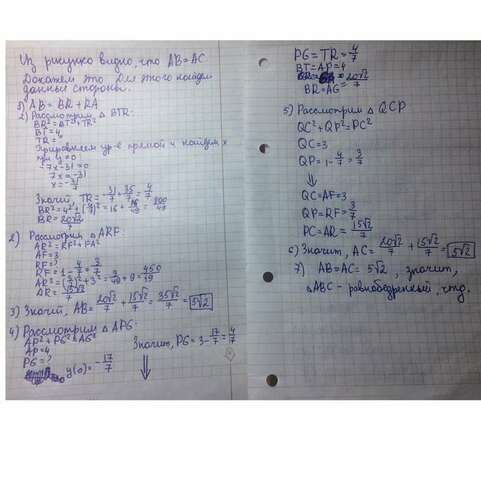 Из рисунка видно, что AB = AC.
Докажем это. Для этого найдем
данные стороны.
AB = BR + RA
1) Рассмотрим △ BTR:
BR² = BT² + TR²
BT = 4
TR =
Приравняем ур-е прямой и найдем x
при y = 0
-7x - 31 = 0
7x = -31
x = -31/7
Значит TR = -31/7 + 35/7 = 4/7
BR² = 4² + (4/7)² = 16 + 16/49 = 800/49
BR = 20√2/7
2) Рассмотрим △ ARF:
AR² = RF² + FA²
AF = 3
RF = ?
RF = 1 - 4/7 = 3/7
AR² = (3/7)² + 3² = 9/49 + 9 = 450/49
AR = 15√2/7
3) Значит, AB = 20√2/7 + 15√2/7 = 35√2/7 = 5√2
4) Рассмотрим △ APG:
AP² + PG² = AG²
AP = 4
PG = ?
y(0) = -17/7
Значит, PG = 3 - 17/7 = 4/7
⇓
PG = TR = 4/7
BT = AP = 4
BR = AG = 20√2/7
5) Рассмотрим △ QCP
QC² + QP² = PC²
QC = 3
QP = 1 - 4/7 = 3/7
⇓
QC = AF = 3
QP = RF = 3/7
PC = AR = 15√2/7
6) Значит, AC = 20√2/7 + 15√2/7 = 5√2
7) AB = AC = 5√2, значит,
△ABC - равнобедренный, чтд.